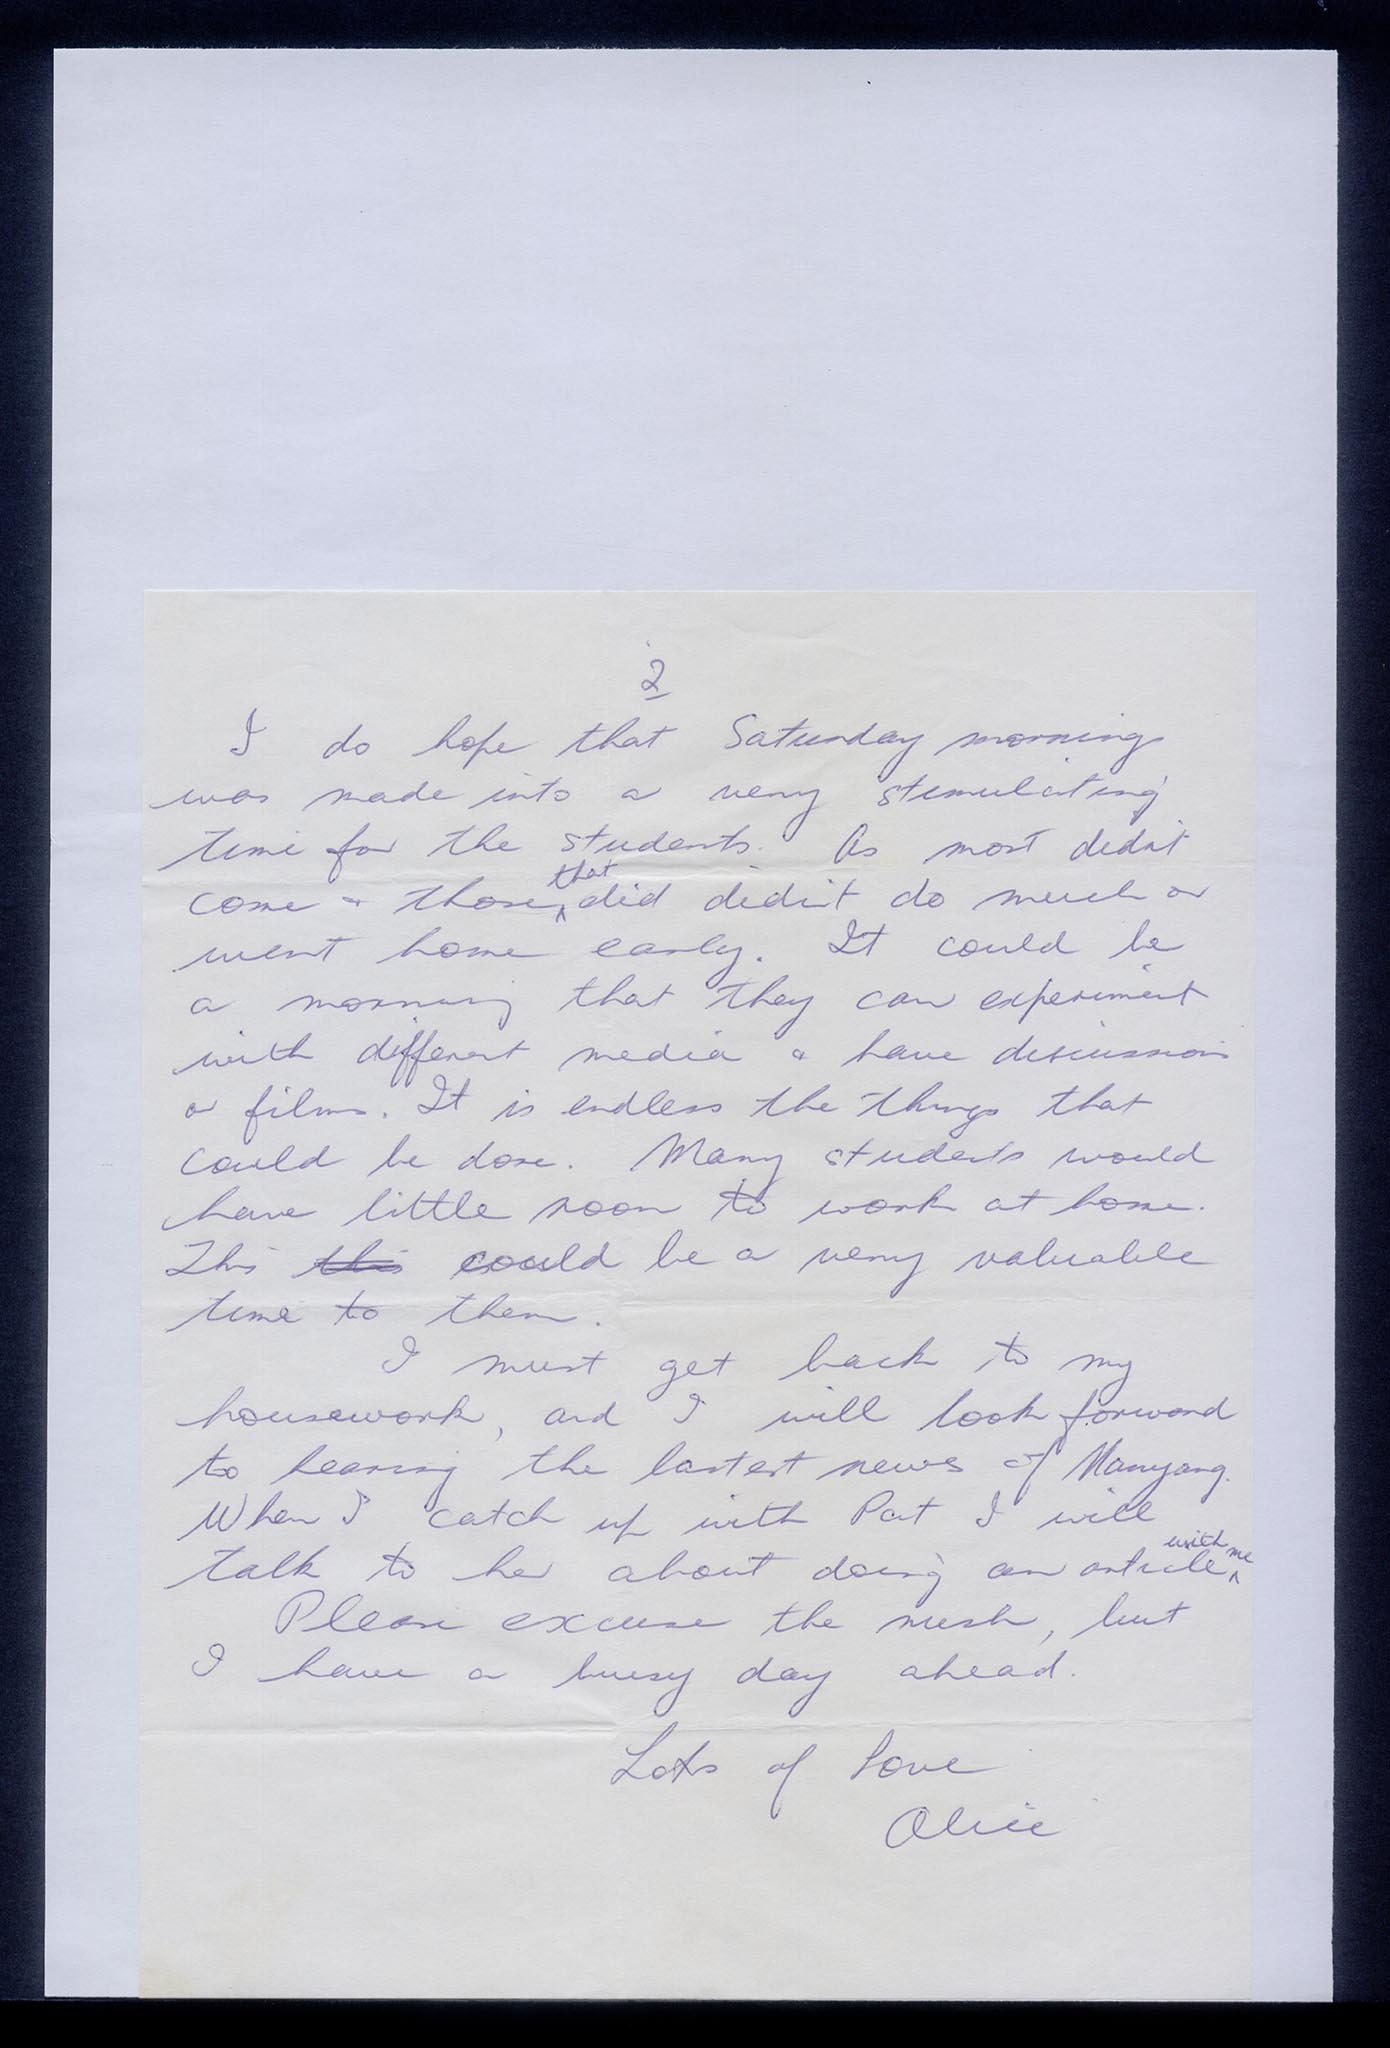 2
I do hope that Saturday morning
was made into a very stimulating
time for the students. As most didn't
come & those that did didn't do much or
went home early. It could be
a morning that they can experiment
with different media & have discussions
or films. It is endless the things that
could be done. Many students would
have little room to work at home.
This this could be a very valuable
time to them.
I must get back to my
housework, and I will look forward
to hearing the lastest news of Nanyang.
When I catch up with Pat I will
talk to her about doing an article with me
Please excuse the rush, but
I have a busy day ahead.
Lots of love
Alice